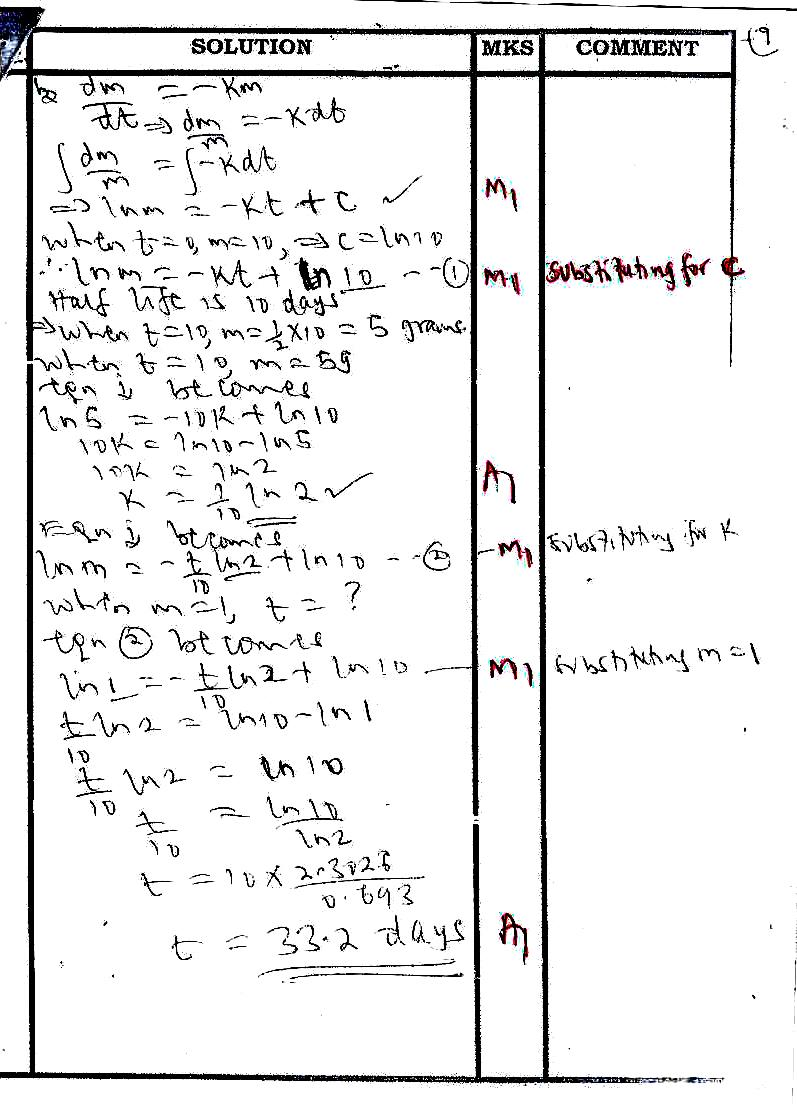 19
SOLUTION MKS COMMENT
b dm/dt = -Km
=> dm/m = -Kdt
∫ dm/m = ∫ -Kdt
=> lnm = -Kt + C ✓ M1
when t=0, m=10, => C = ln10
∴ lnm = -Kt + ln 10 --① M1 Substituting for C
Half life is 10 days
=> when t=10, m=½×10 = 5 grams.
when t=10, m=5g
eqn i becomes
ln5 = -10K + ln10
10K = ln10-ln5
10K = ln2
K = 1/10 ln 2 ✓ A1
Eqn i becomes
lnm = -t/10 ln2 + ln10 --② M1 Substituting for K
when m=1, t = ?
eqn ② becomes
ln1 = -t/10 ln2 + ln10 M1 Substituting m=1
t/10 ln2 = ln10-ln1
t/10 ln2 = ln10
t/10 = ln10/ln2
t = 10 × 2.3026/0.693
t = 33.2 days A1